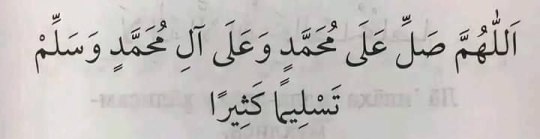 اَللّٰهُمَّ صَلِّ عَلَى مُحَمَّدٍ وَعَلَى آلِ مُحَمَّدٍ وَسَلِّمْ
تَسْلِيمًا كَثِيرًا